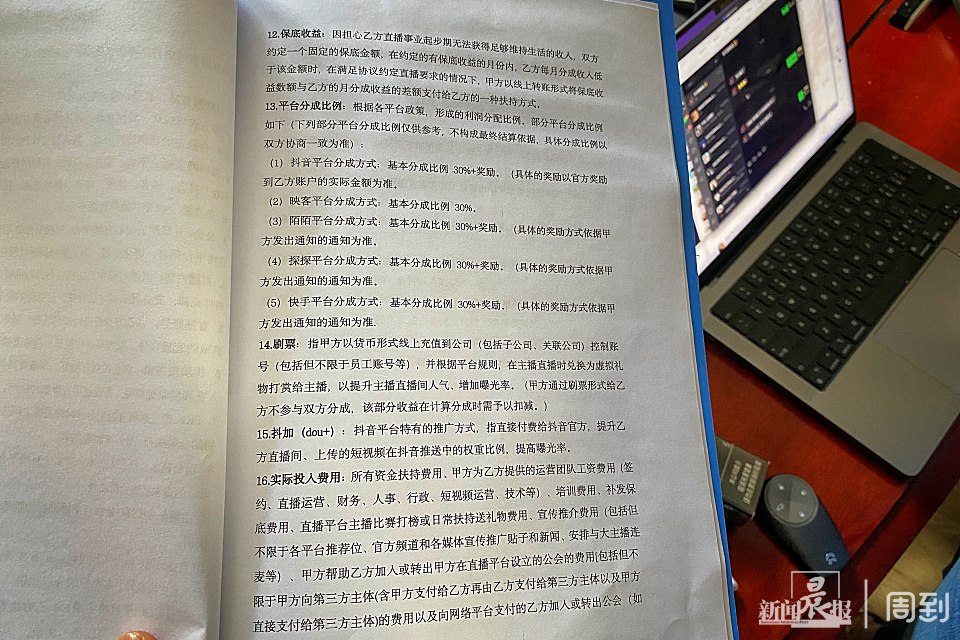 12.保底收益：因担心乙方直播事业起步期无法获得足够维持生活的收入，双方
约定一个固定的保底金额，在约定的有保底收益的月份内，乙方每月分成收入低
于该金额时，在满足协议约定直播要求的情况下，甲方以线上转账形式将保底收
益数额与乙方的月分成收益的差额支付给乙方的一种扶持方式。
13.平台分成比例：根据各平台政策，形成的利润分配比例，部分平台分成比例
如下（下列部分平台分成比例仅供参考，不构成最终结算依据，具体分成比例以
双方协商一致为准）：
（1）抖音平台分成方式：基本分成比例 30%+奖励。（具体的奖励以官方奖励
到乙方账户的实际金额为准。
（2）映客平台分成方式：基本分成比例 30%。
（3）陌陌平台分成方式：基本分成比例 30%+奖励。（具体的奖励方式依据甲
方发出通知的通知为准。
（4）探探平台分成方式：基本分成比例 30%+奖励。（具体的奖励方式依据甲
方发出通知的通知为准。
（5）快手平台分成方式：基本分成比例 30%+奖励。（具体的奖励方式依据甲
方发出通知的通知为准.
14.刷票：指甲方以货币形式线上充值到公司（包括子公司、关联公司）控制账
号（包括但不限于员工账号等），并根据平台规则，在主播直播时兑换为虚拟礼
物打赏给主播，以提升主播直播间人气、增加曝光率。（甲方通过刷票形式给乙
方不参与双方分成，该部分收益在计算分成时需予以扣减。）
15.抖加（dou+）：抖音平台特有的推广方式，指直接付费给抖音官方，提升乙
方直播间、上传的短视频在抖音推送中的权重比例，提高曝光率。
16.实际投入费用：所有资金扶持费用、甲方为乙方提供的运营团队工资费用（签
约、直播运营、财务、人事、行政、短视频运营、技术等）、培训费用、补发保
底费用、直播平台主播比赛打榜或日常扶持送礼物费用、宣传推介费用（包括但
不限于各平台推荐位、官方频道和各媒体宣传推广贴子和新闻、安排与大主播连
麦等）、甲方帮助乙方加入或转出甲方在直播平台设立的公会的费用(包括但不
限于甲方向第三方主体(含甲方支付给乙方再由乙方支付给第三方主体以及甲方
直接支付给第三方主体)的费用以及向网络平台支付的乙方加入或转出公会（如
新闻晨报
周到